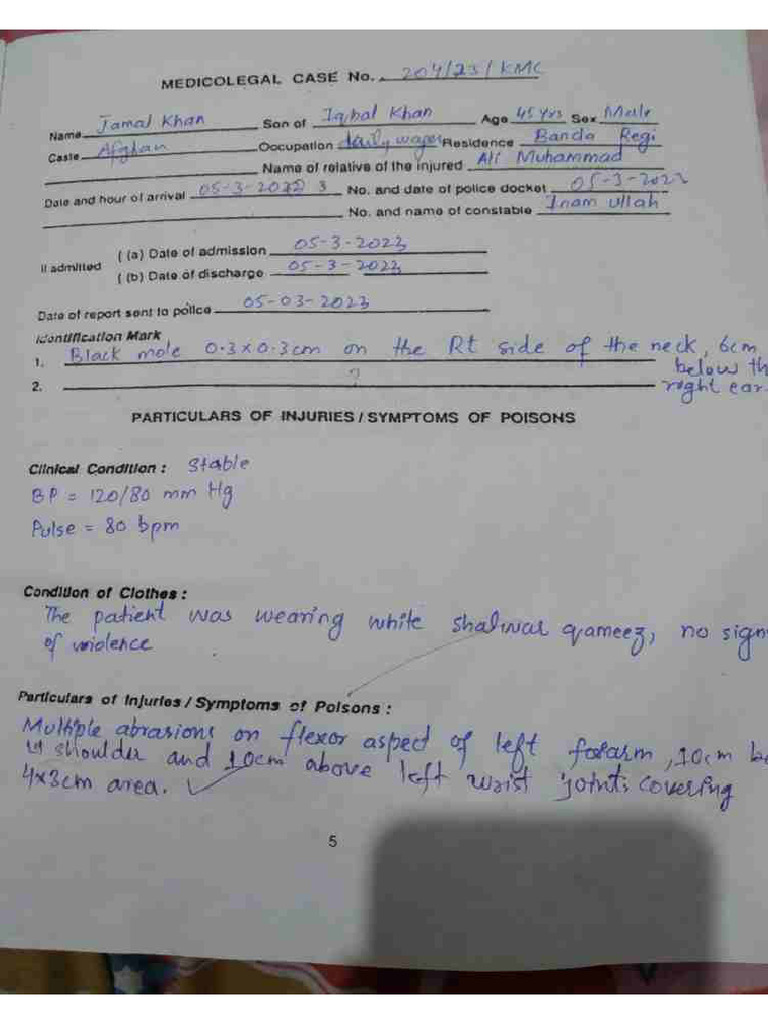 MEDICOLEGAL CASE No. 204/23/KMC
Name Jamal Khan Son of Iqbal Khan Age 45 Yrs Sex Male
Caste Afghan Occupation daily wager Residence Banda Regi
Name of relative of the injured Ali Muhammad
Date and hour of arrival 05-3-2022 3 No. and date of police docket 05-3-2023
No. and name of constable Inam ullah
If admitted
( (a) Date of admission 05-3-2023
( (b) Date of discharge 05-3-2023
Date of report sent to police 05-03-2023
Identification Mark
1. Black mole 0.3x0.3cm on the Rt side of the neck, 6cm
below th
2. right ear.
PARTICULARS OF INJURIES/SYMPTOMS OF POISONS
Clinical Condition : Stable
BP = 120/80 mm Hg
Pulse = 80 bpm
Condition of Clothes :
The patient was wearing white shalwar qameez, no sign
of
Particulars of Injuries/Symptoms of Poisons :
Multiple abrasions on flexor aspect of left , 10cm be
shoulder and 10cm above left wrist joint; covering
4x3cm area.
5